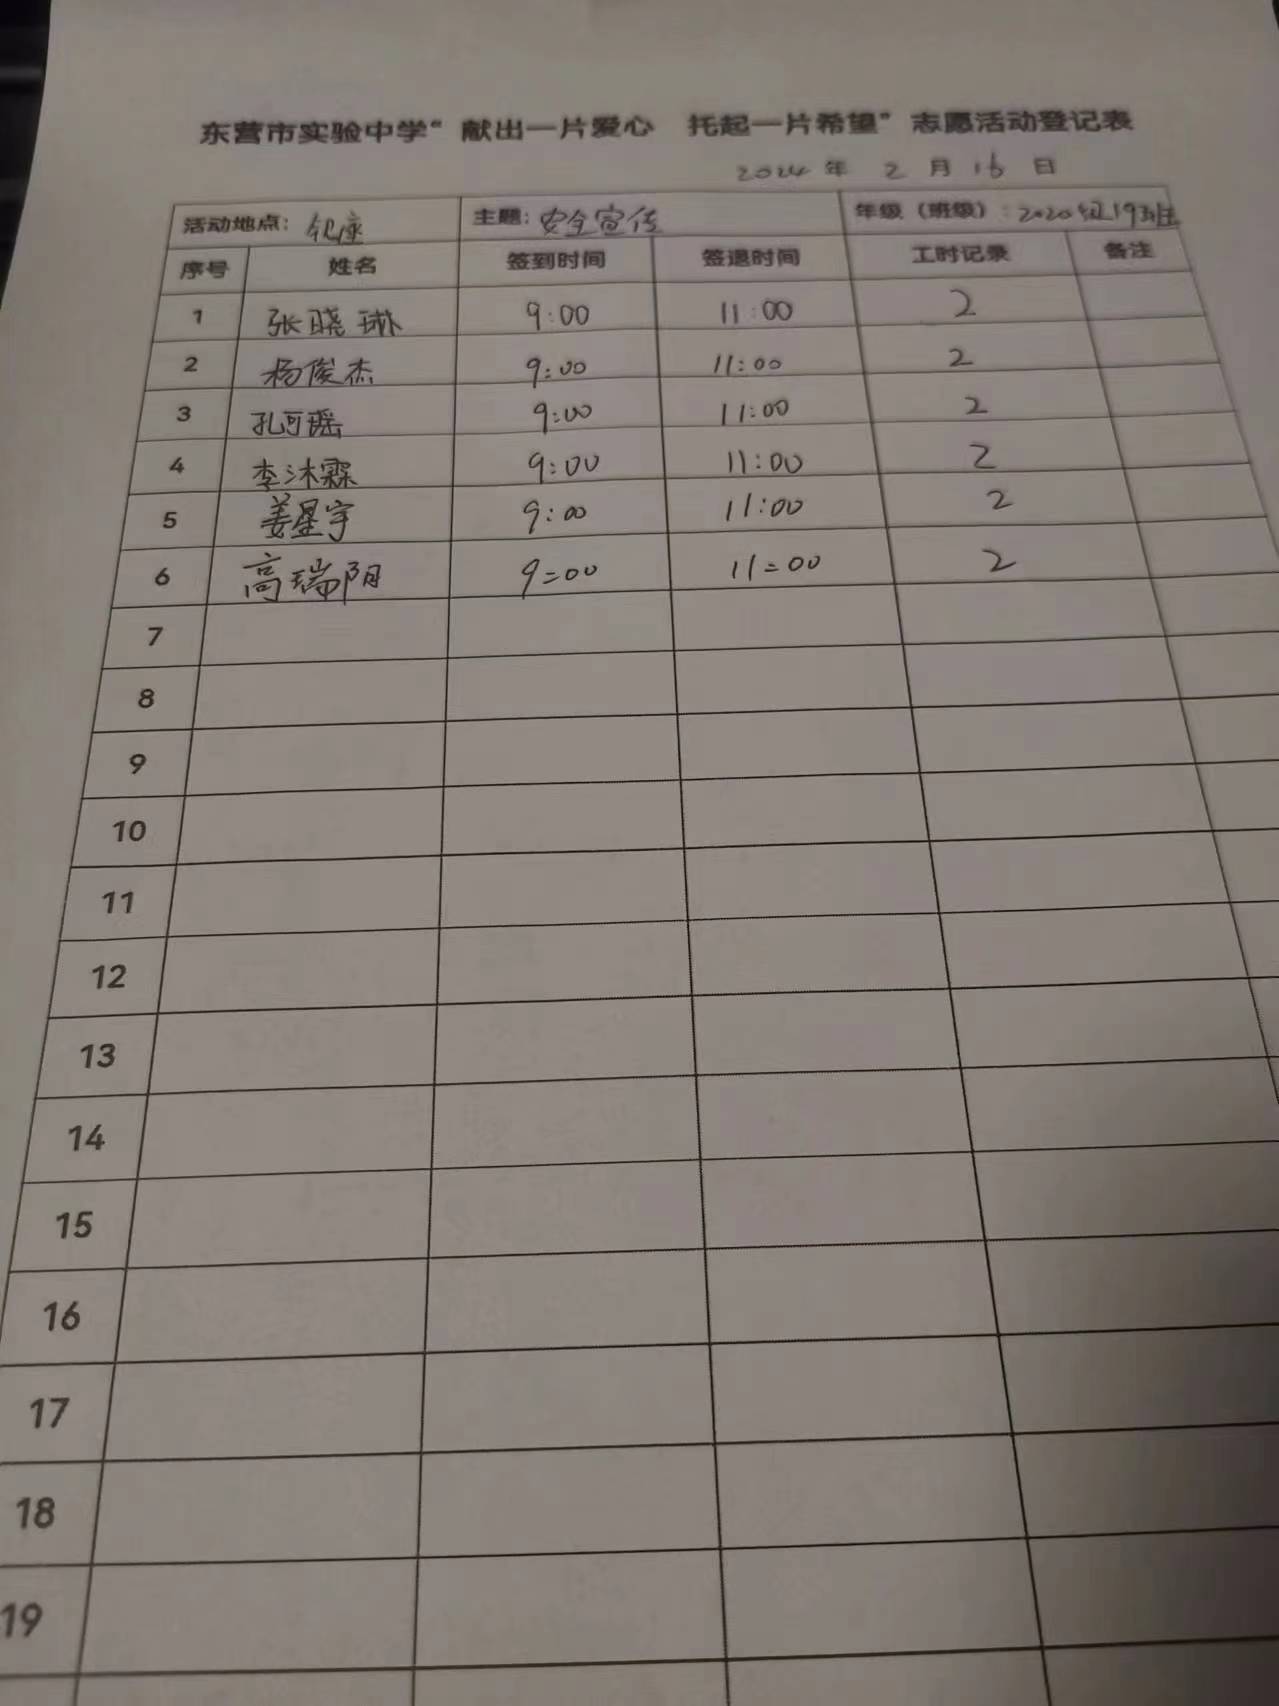 东营市实验中学“献出一片爱心 托起一片希望”志愿活动登记表
2024年 2月 16日
活动地点：银座 主题：安全宣传 年级（班级）：2020级19班
序号 姓名 签到时间 签退时间 工时记录 备注
1 张晓琳 9:00 11:00 2
2 杨俊杰 9:00 11:00 2
3 孔可瑶 9:00 11:00 2
4 李沐霖 9:00 11:00 2
5 姜星宇 9:00 11:00 2
6 高瑞阳 9:00 11:00 2
7
8
9
10
11
12
13
14
15
16
17
18
19